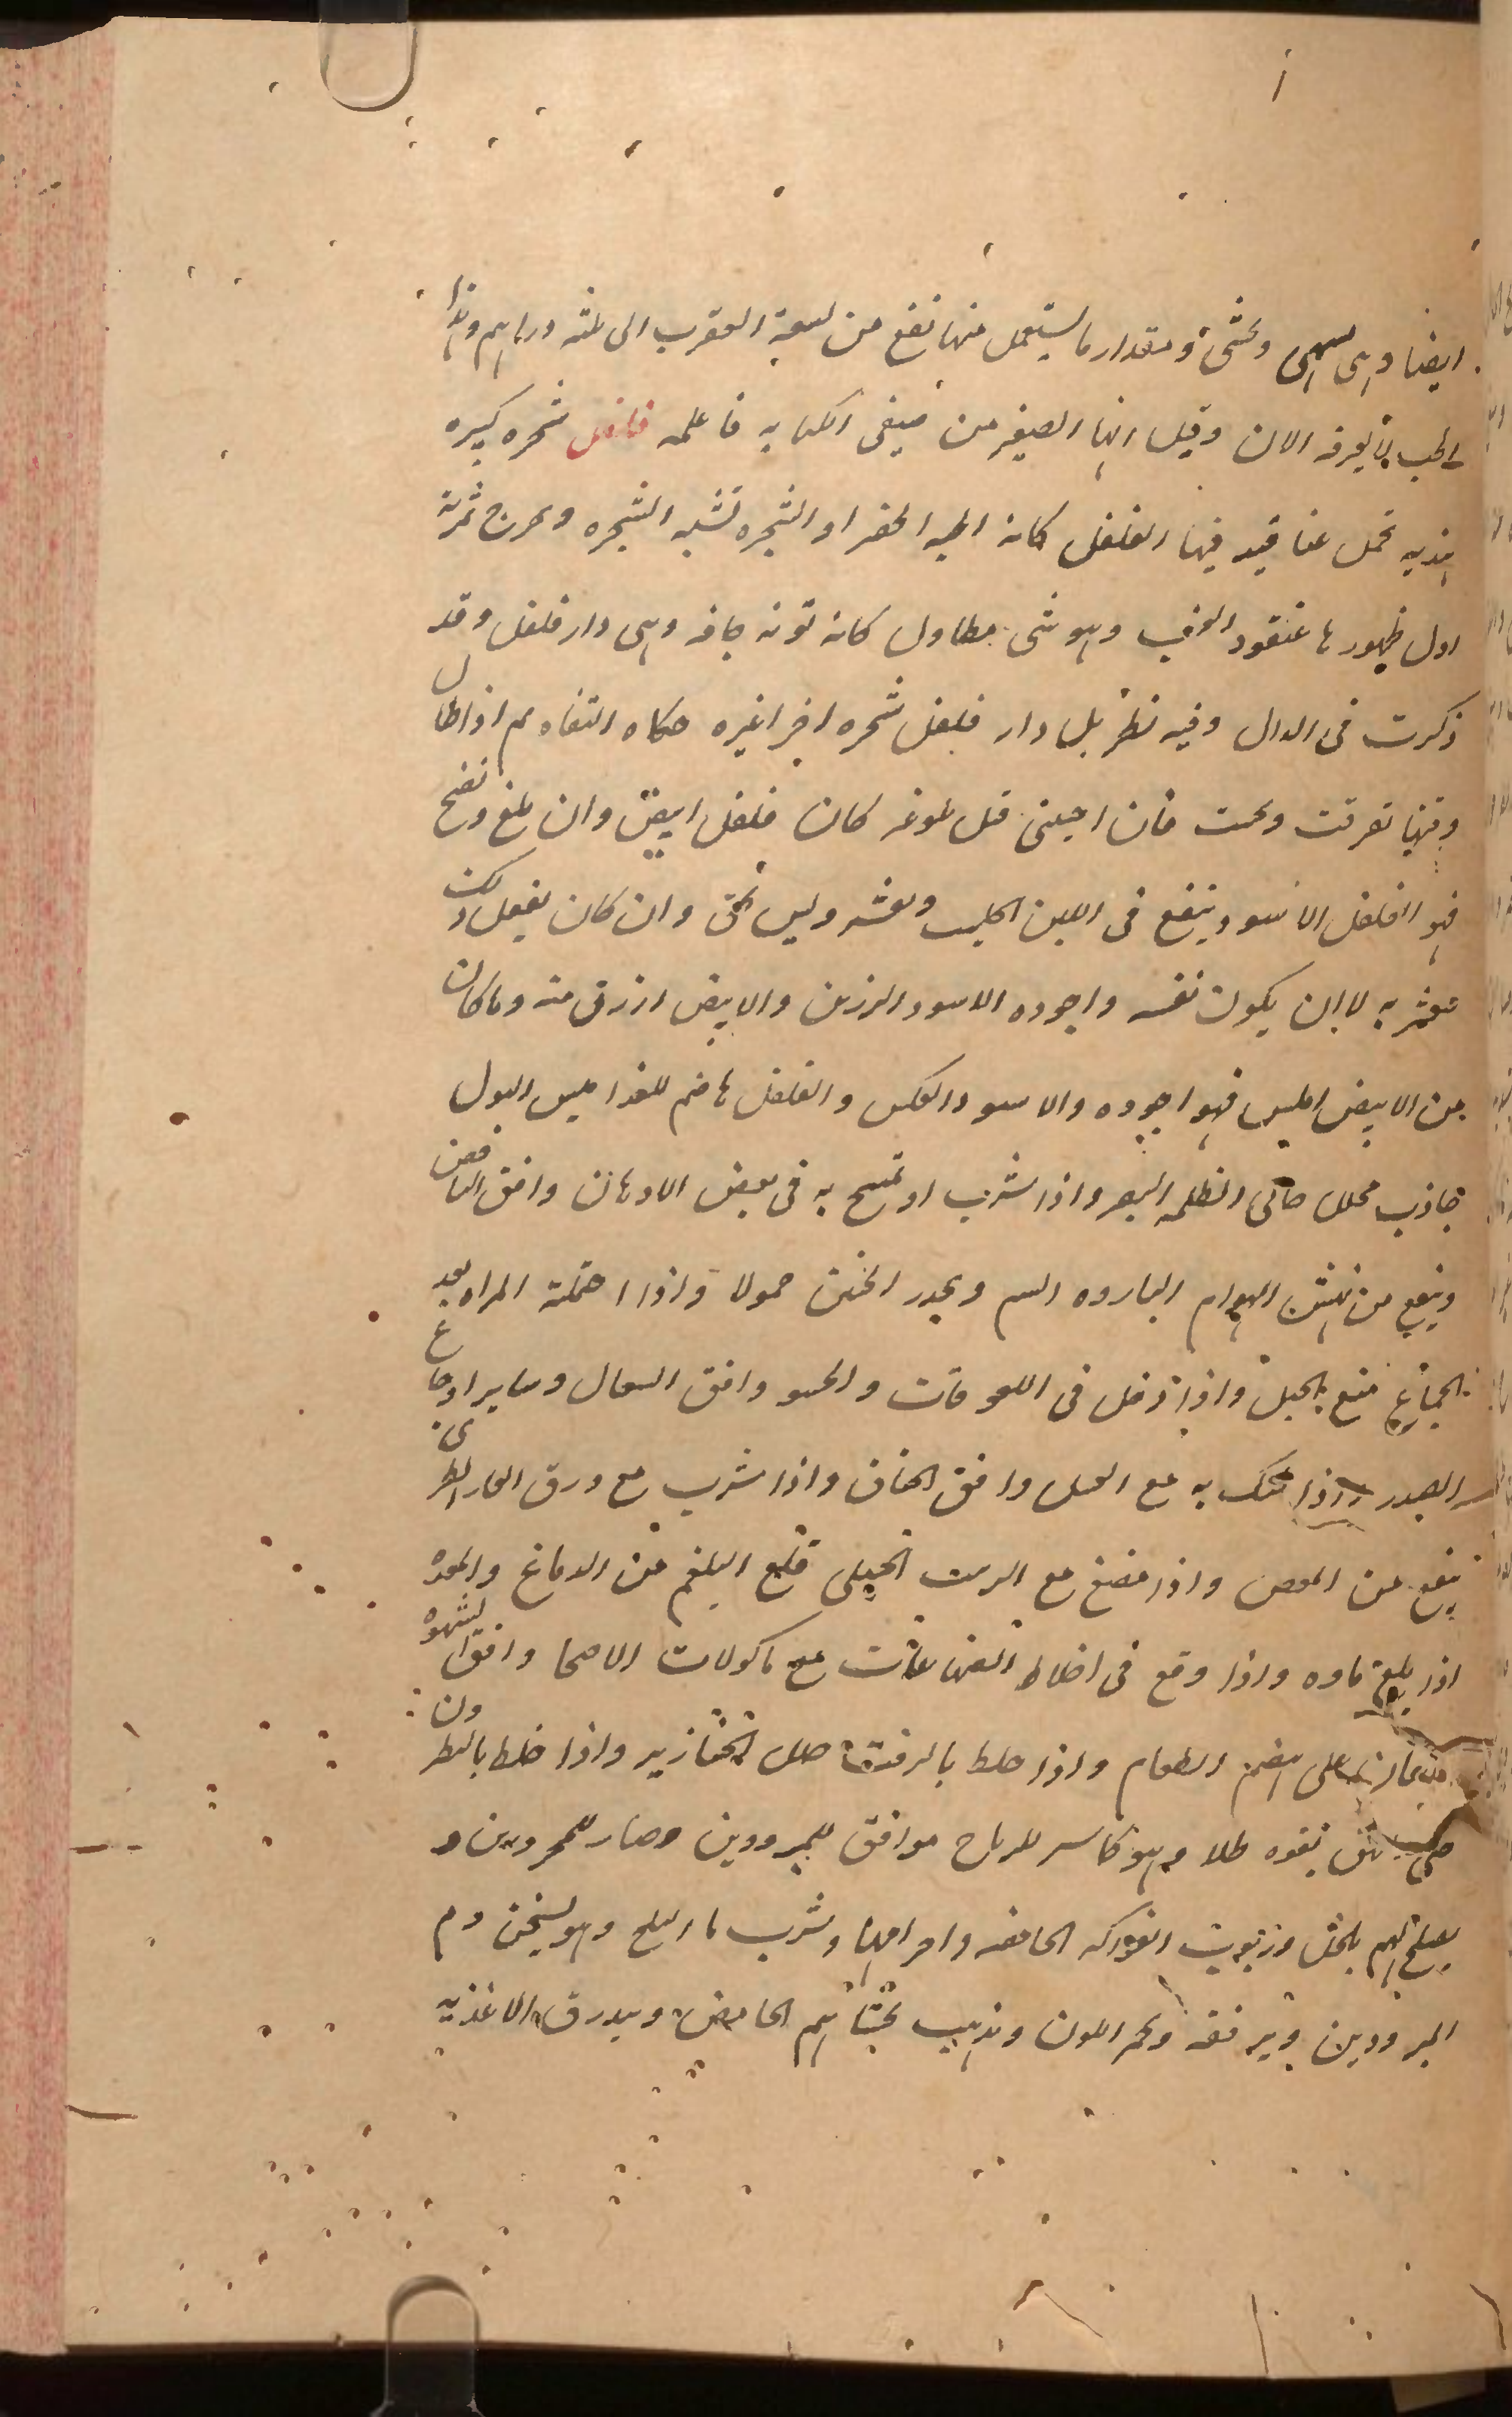 ايضا وهى وتمشى ومقدار ما يستعمل منها نفع من لسعة العقرب الى ثلثه دراهم وهذا
الحب لا يعرف الان وقيل انها الصغير من فيقى الكبابه فاعلمه فلفل شجره كبيره
هنديه تحمل عناقيد فيها الفلفل كانه الحبه الخضرا والشجره تشبه الشجره ويخرج ثمرته
اول ظهورها عنقود وهو شى مطاول كانه توته جافه وهى دار فلفل وقد
ذكرت فى الدال وفيه نظر بل دار فلفل شجره اخر اغيره حكاه التفاوم اذا طال
وقتها تفرقت وتحببت فان اجتنى قبل بلوغه كان فلفل ابيض وان بلغ ونضج
فهو الفلفل الاسود وينقع فى اللبن الحليب ويقشر وليس بحق وان كان يفعل ذلك
به لا ان يكون نفسه واجوده الاسود الرزين والابيض ارزق منه وما كان
من الابيض املس فهو اجوده والاسود بالعكس والفلفل هاضم للغذا ميسر البول
جاذب محلل جالى لظلمه البصر واذا شرب او تمسح به فى بعض الادهان وافق النافض
وينفع من نهش الهوام البارده السم ويحدر الجنين حمولا واذا احتملته المراه بعد
الجماع منع الحبل واذا دخل فى اللعوقات والحسو وافق السعال وساير اوجاع
الصدر واذا تحنك به مع العسل وافق الخناق واذا شرب مع ورق الغار الطرى
ينفع من المغص واذا مضغ مع الزبيب الجبلى قلع البلغم من الدماغ والمعده
اذا بلع ماوه واذا وقع فى اخلاط الصباغات مع ماكولات الاصحا وافق الشهوه
على هضم الطعام واذا خلط بالزفت حلل الخنازير واذا خلط بالنطرون
بقوه طلا وهو كاسر للرياح موافق للمبرودين وضار للمحرورين و
يصلح لهم بالخل وزيوت الفواكه الحامضه وشرب ما الثلج وهو يسخن دم
المبرودين ويرققه ويحمر اللون ويذهب بجشائهم الحامض ويبدرق الاغذيه